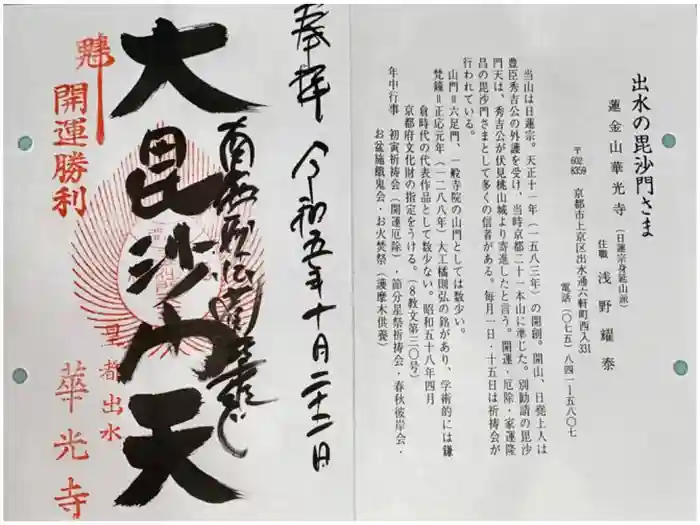 出水の毘沙門さま
蓮金山華光寺(日蓮宗身延山派)
住職 浅野耀泰
〒602-8359 京都市上京区出水通六軒町西入331
電話(〇七五)八四一-五八〇七
当山は日蓮宗。天正十一年(一五八三年)の開創。開山、日堯上人は
豊臣秀吉公の外護を受け、当時京都二十一本山に準じた。別勧請の毘沙
門天は、秀吉公が伏見桃山城より寄進したと言う。開運・厄除・家運隆
昌の毘沙門さまとして多くの信者がある。毎月一日・十五日は祈祷会が
行われている。
山門=六足門、一般寺院の山門としては数少い。
梵鐘=正応元年(一二八八年)大工橘則弘の銘があり、学術的には鎌
倉時代の代表作品として数少ない。昭和五十八年四月
京都府文化財の指定をうける。(8教文第三〇号)
年中行事 初寅祈祷会(開運厄除)・節分星祭祈祷会・春秋彼岸会・
お盆施餓鬼会・お火焚祭(護摩木供養)
奉拝 令和五年十月二十二日
大毘沙門天
開運勝利
皇都出水
華光寺